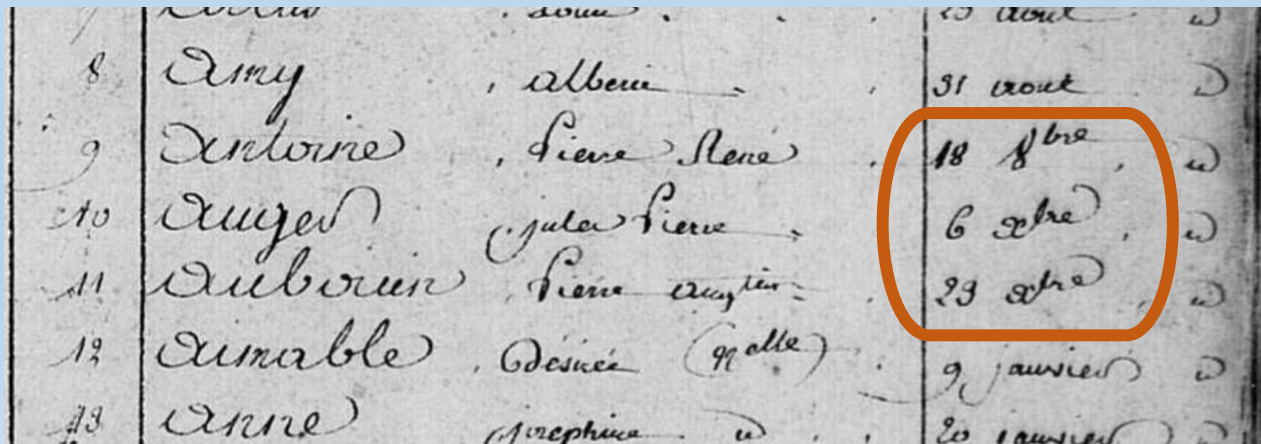 août
8 Amy, alberic 31 août d
9 Antoine, Pierre René 18 8bre, d
10 Auger, jules Pierre 6 xbre, d
11 Aubouin, Pierre augtin 29 xbre, d
12 Aimable, Désirée (nelle) 9 janvier d
13 Anne, joséphine d 20 janvier